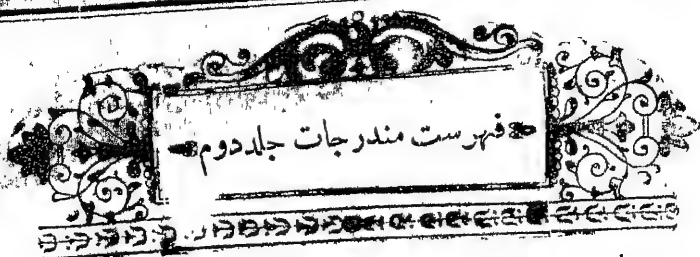 فہرست مندرجات جلد دوم